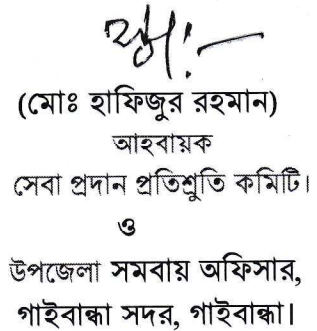 (মোঃ হাফিজুর রহমান)
আহবায়ক
সেবা প্রদান প্রতিশ্রুতি কমিটি।
ও
উপজেলা সমবায় অফিসার,
গাইবান্ধা সদর, গাইবান্ধা।